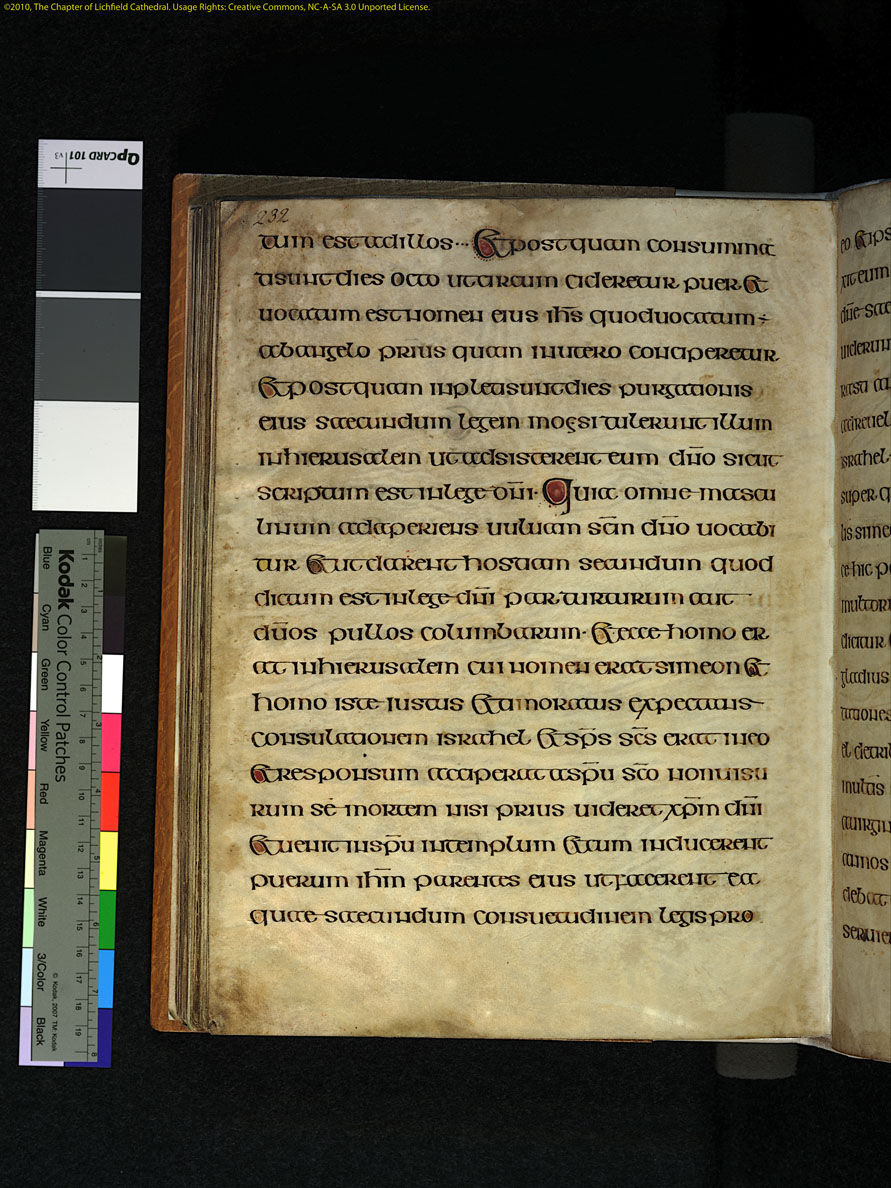 ©2010, The Chapter of Lichfield Cathedral. Usage Rights: Creative Commons, NC-A-SA 3.0 Unported License.
QPCARD 101 v3
Kodak Color Control Patches
Blue Cyan Green Yellow Red Magenta White 3/Color Black
© Kodak, 2007 TM: Kodak
232
tum est ad illos ... Et postquam consummat
ti sunt dies octo ut circum cideretur puer et
uocatum est nomen eius ihs̄ quod uocatum ÷
ab angelo prius quam in utero conciperetur
Et postquam inpleti sunt dies purgationis
eius saecundum legem mosi tulerunt illum
in hierusalem ut adsisterent eum dn̄o sicut
scriptum est in lege dn̄i · Quia omne mascu
linum adaperiens uuluam sc̄m dn̄o uocabi
tur Et ut darent hostiam secundum quod
dictum est in lege dn̄i par turturum aut
duos pullos columbarum · Et ecce homo er
at in hierusalem cui nomen erat simeon et
homo iste iustus et timoratus expectans
consulationem israhel et sps̄ sc̄s erat in eo
Et responsum acciperat a sp̄u sc̄o non uisu
rum se mortem nisi prius uideret xp̄m dn̄i
Et uenit in sp̄u in templum et cum inducerent
puerum ihm̄ parentes eius ut facerent ea
quae saecundum consuetudinem legis pro